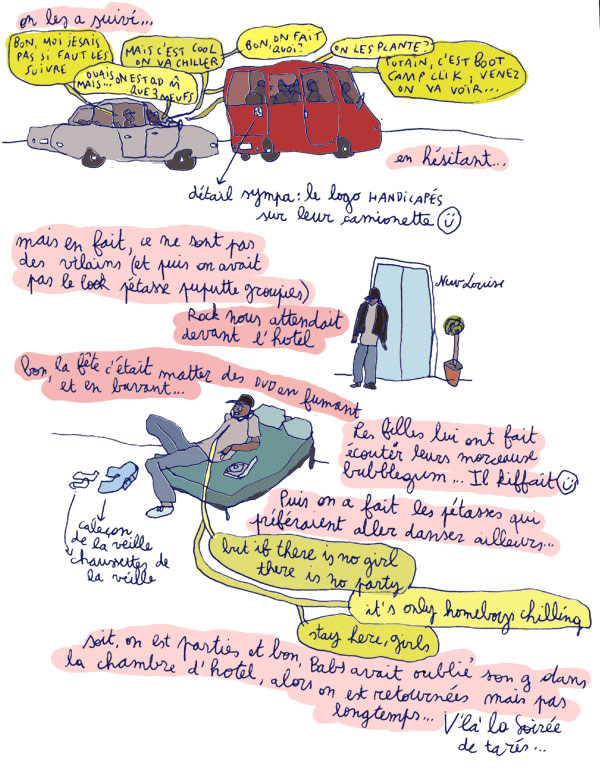 on les a suivi...
BON, MOI JESAIS
PAS SI FAUT LES
SUIVRE
MAIS C'EST COOL
ON VA CHILLER
BON, ON FAIT
QUOI?
ON LES PLANTE?
PUTAIN, C'EST BOOT
CAMP CLIK; VENEZ
ON VA VOIR...
OUAIS
MAIS... ON EST QD M̂
QUE 3 MEUFS
en hésitant...
détail sympa: le logo HANDICAPÉS
sur leur camionette
mais en fait, ce ne sont pas
des vilains (et puis on avait
pas le look pétasse puputte groupies)
New Louise
Rock nous attendait
devant l'hotel
bon, la fête c'était matter des DVD en fumant
et en buvant...
Les filles lui ont fait
écouter leurs morceaux
bubblegum... Il kiffait
caleçon
de la veille
chaussettes de
la veille
Puis on a fait les pétasses qui
préféraient aller danser ailleurs...
but if there is no girl
there is no party
it's only homeboys chilling
stay here, girls
soit, on est parties et bon, Babs avait oublié son g dans
la chambre d'hotel, alors on est retournées mais pas
longtemps...
V'là la soirée
de tarés...